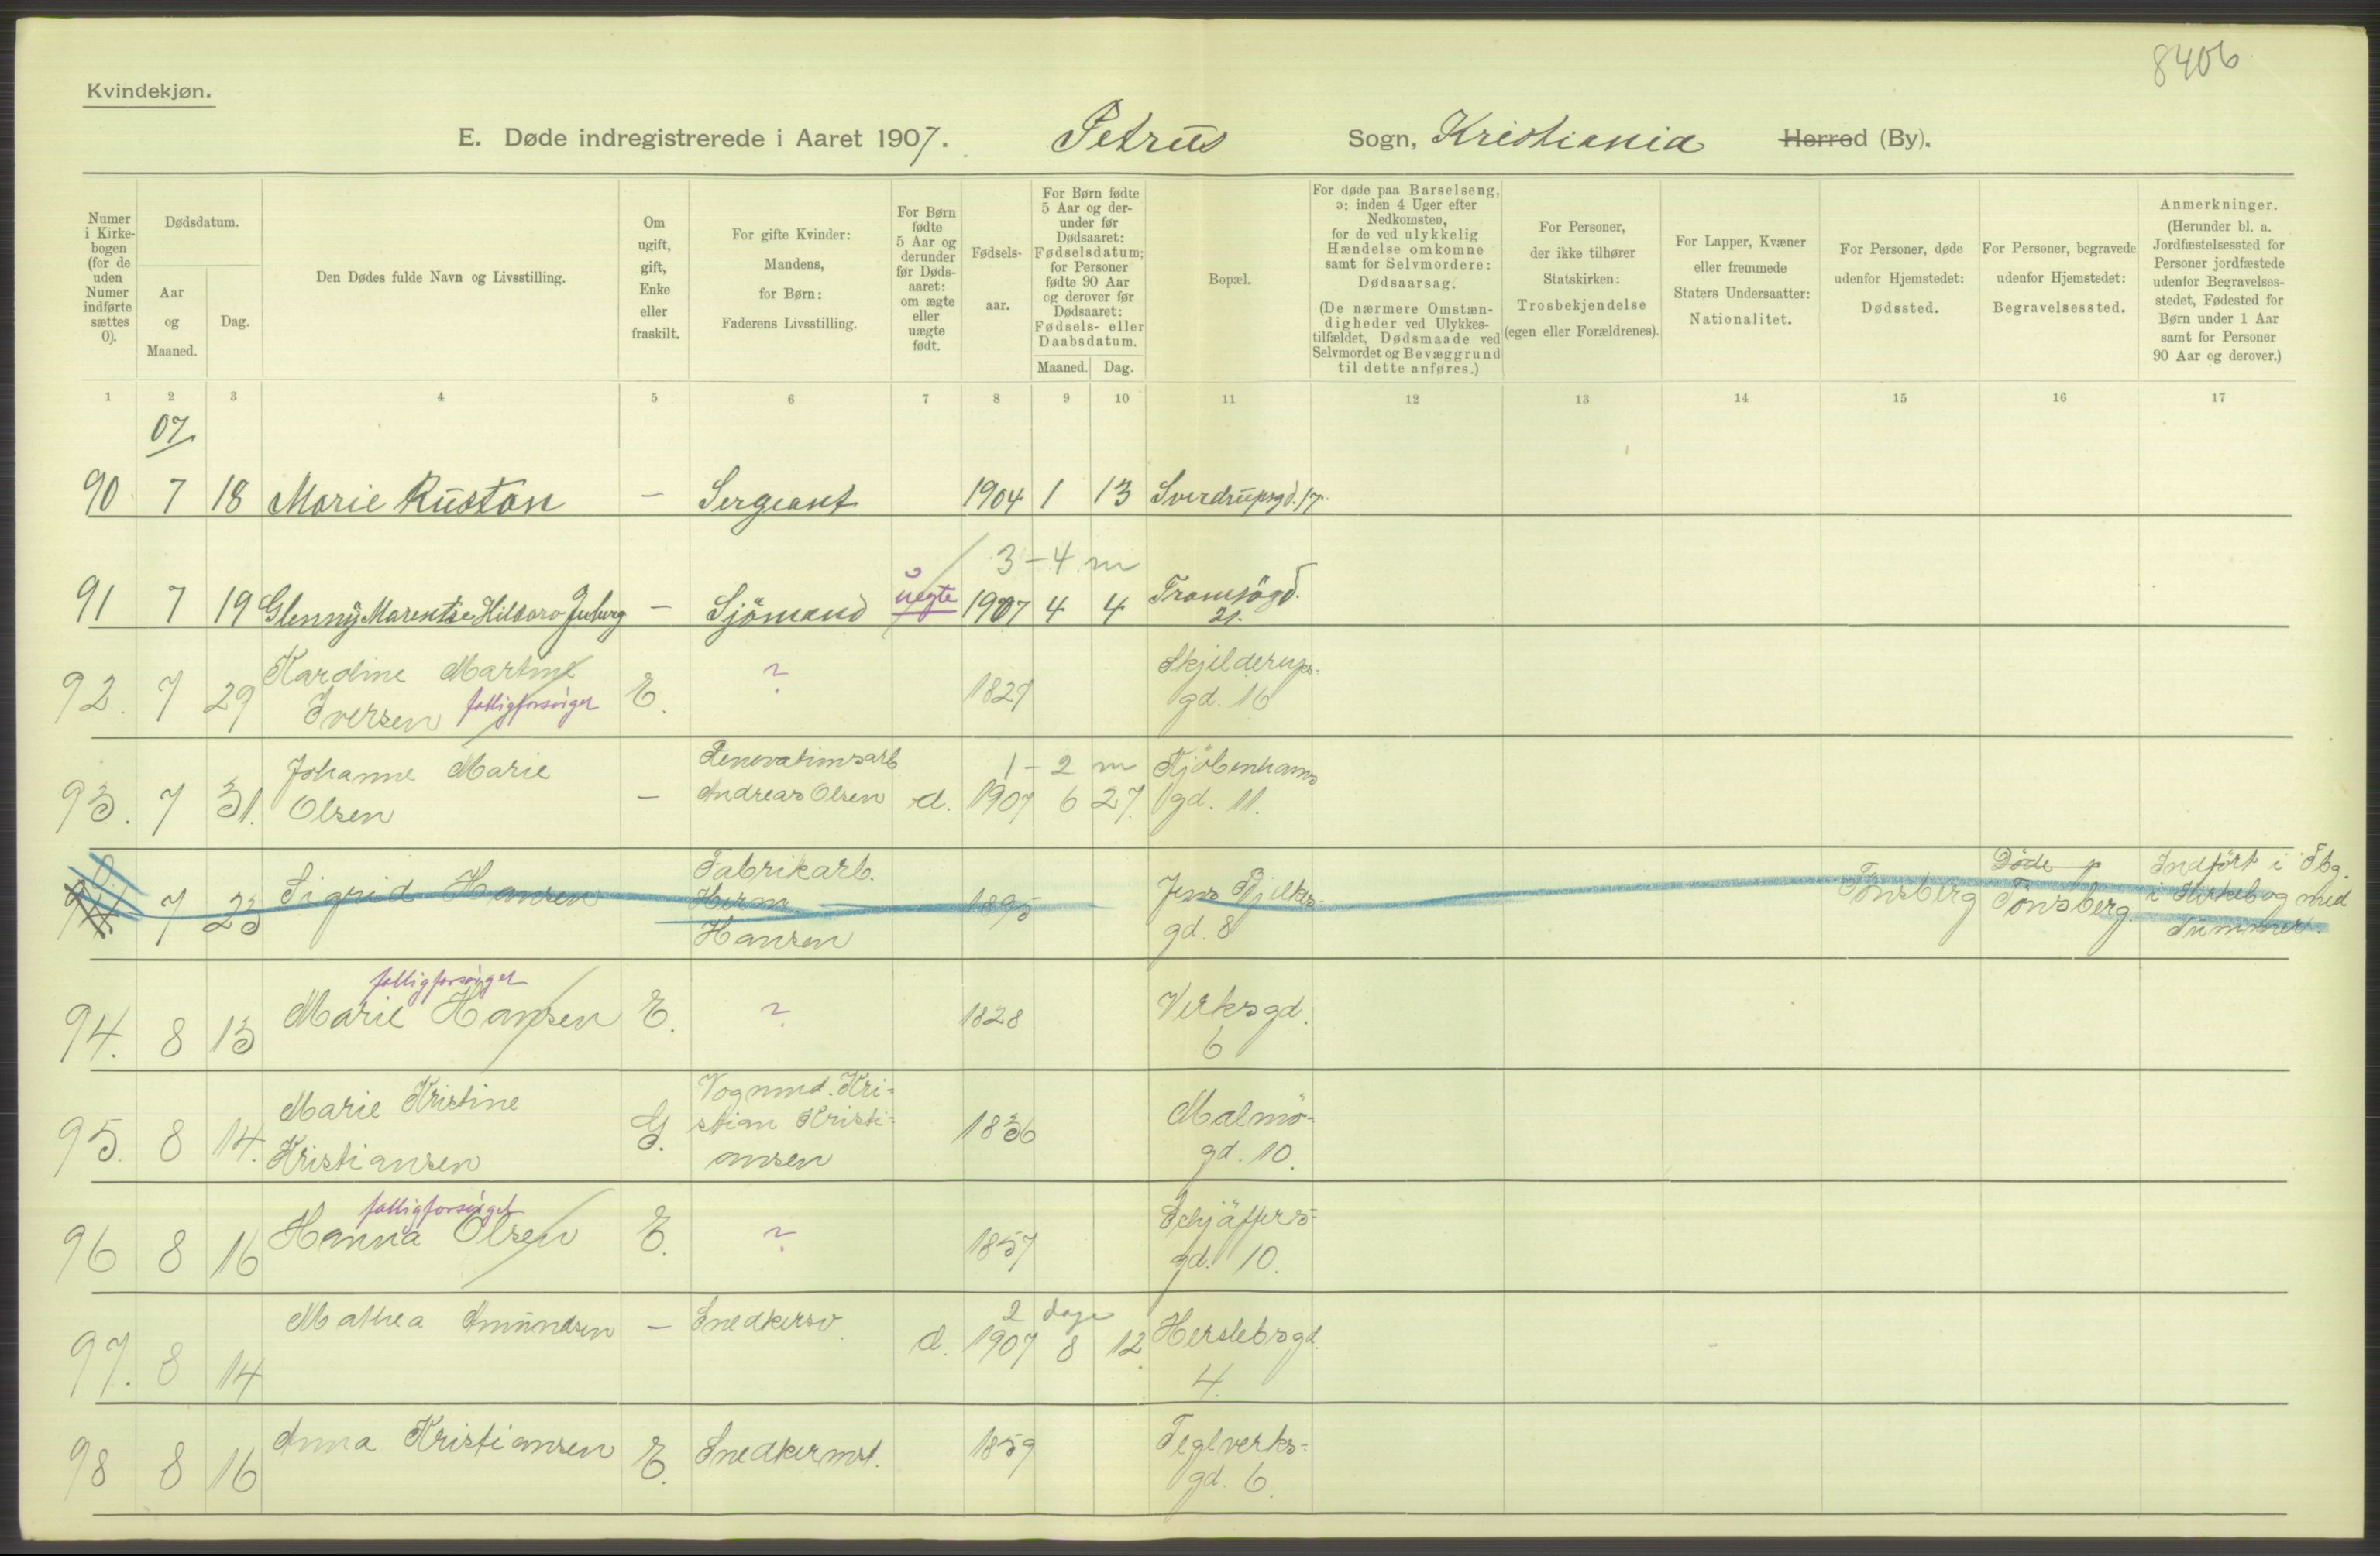 8406
Kvindekjøn.
E. Døde indregistrerede i Aaret 1907. Petrus Sogn, Kristiania Herred (By).
Numer i Kirkebogen (for de uden Numer indførte sættes 0).
Dødsdatum.
Aar og Maaned.
Dag.
Den Dødes fulde Navn og Livsstilling.
Om ugift, gift, Enke eller fraskilt.
For gifte Kvinder: Mandens, for Børn: Faderens Livsstilling.
For Børn fødte 5 Aar og derunder før Dødsaaret: om ægte eller uægte født.
Fødselsaar.
For Børn fødte 5 Aar og derunder før Dødsaaret: Fødselsdatum; for Personer fødte 90 Aar og derover før Dødsaaret: Fødsels- eller Daabsdatum.
Maaned. Dag.
Bopæl.
For døde paa Barselseng, ɔ: inden 4 Uger efter Nedkomsten, for de ved ulykkelig Hændelse omkomne samt for Selvmordere: Dødsaarsag.
(De nærmere Omstændigheder ved Ulykkestilfældet, Dødsmaade ved Selvmordet og Bevæggrund til dette anføres.)
For Personer, der ikke tilhører Statskirken: Trosbekjendelse (egen eller Forældrenes).
For Lapper, Kvæner eller fremmede Staters Undersaatter: Nationalitet.
For Personer, døde udenfor Hjemstedet: Dødssted.
For Personer, begravede udenfor Hjemstedet: Begravelsessted.
Anmerkninger. (Herunder bl. a. Jordfæstelsessted for Personer jordfæstede udenfor Begravelsesstedet, Fødested for Børn under 1 Aar samt for Personer 90 Aar og derover.)
1 2 3 4 5 6 7 8 9 10 11 12 13 14 15 16 17
07
90 7 18 Marie Rustan - Sergeant 1904 1 13 Sverdrupsgd. 17
3-4 m
91 7 19 Glenny Marentse Juberg - Sjömand uegte 1907 4 4 Tromsögd. 21.
92. 7 29 Karoline Martine Iversen fattigforsörget E. ? 1827 Skjelderups-gd. 16
1-2 m
93. 7 31. Johanne Marie Olsen - Renovationsarb. Andreas Olsen d. 1907 6 27. Kjöbenhavnsgd. 11.
7 23 Sigrid Hansen Fabrikarb. Herm. Hansen 1895 Jens Bjelkes-gd. 8 Tönsberg Døde Tönsberg. Indført i Tbg. i Kirkebog med Nummer.
94. 8 13 Marie Hansen fattigforsörget E. ? 1828 Verksgd. 6
95. 8 14. Marie Kristine Kristiansen G. Vognmd. Kri=stian Kristi=ansen 1836 Malmö-gd. 10.
96 8 16 Hanna Olsen fattigforsörget E. ? 1857 Schjäffers=gd. 10.
2 dage
97. 8 14 Mathea Amundsen - Snedkersv. d. 1907 8 12. Herslebsgd. 4.
98 8 16 Anna Kristiansen E. Snedkermst. 1859 Teglverks=gd. 6.